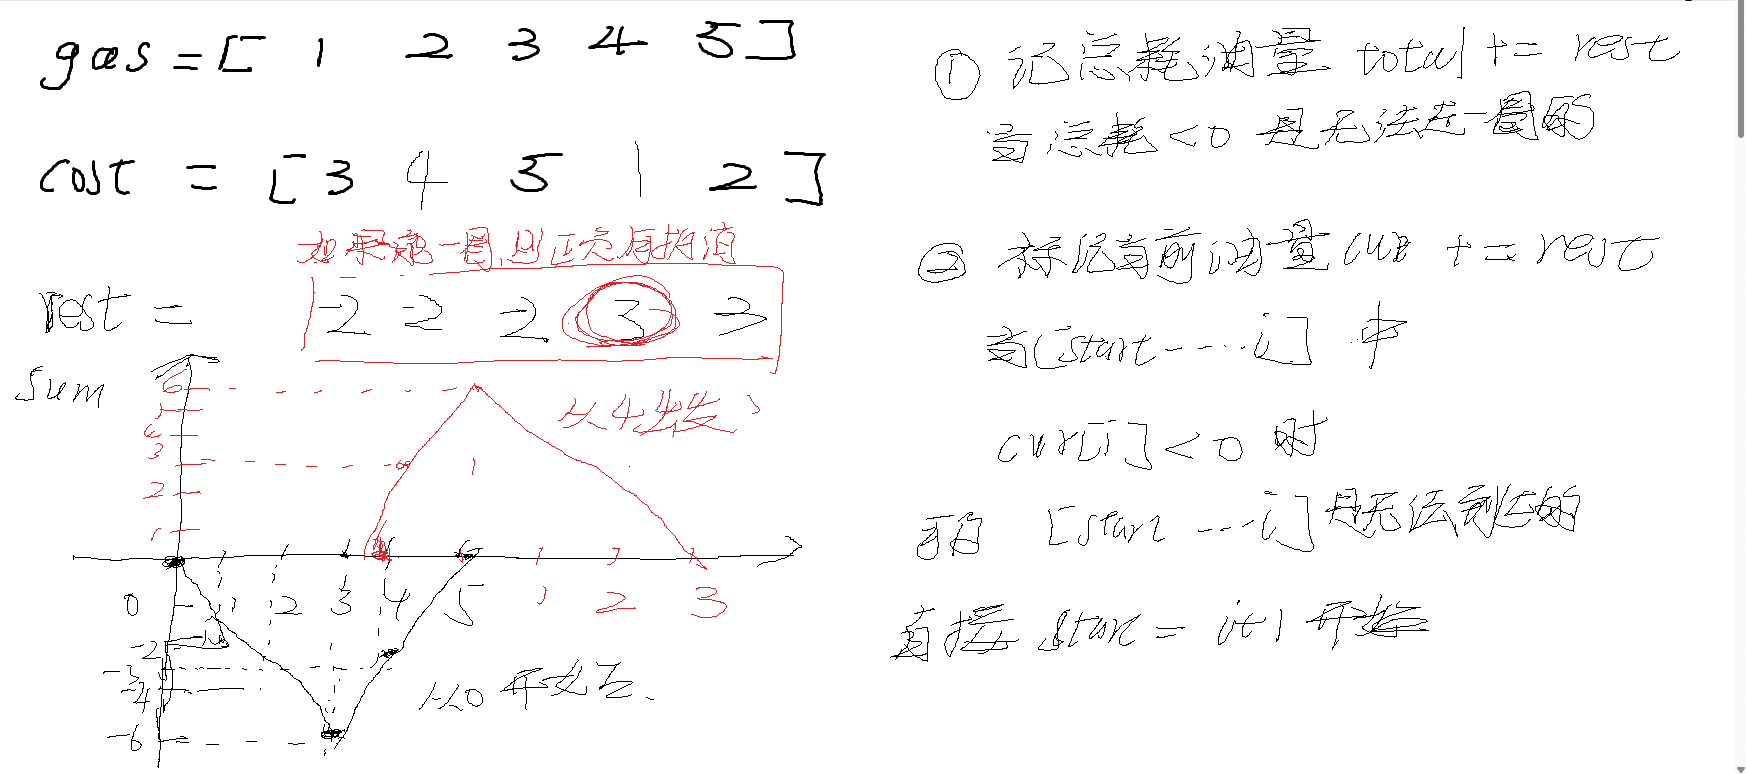 gas = [ 1 2 3 4 5 ]
cost = [ 3 4 5 1 2 ]
如果能一圈,且正负有抵消
rest = -2 -2 -2 3 3
sum
6
5
4
3
2
1
从4出发
0 1 2 3 4 5 1 2 3
-2
-3
-4
-6
从0开始
① 记总耗油量 total += rest
当总耗<0 是无法走一圈的
② 标记当前油量 cur += rest
当[start----i] 中
cur[i]<0 时
[start ---i]是无法到达的
直接 start = i+1 开始